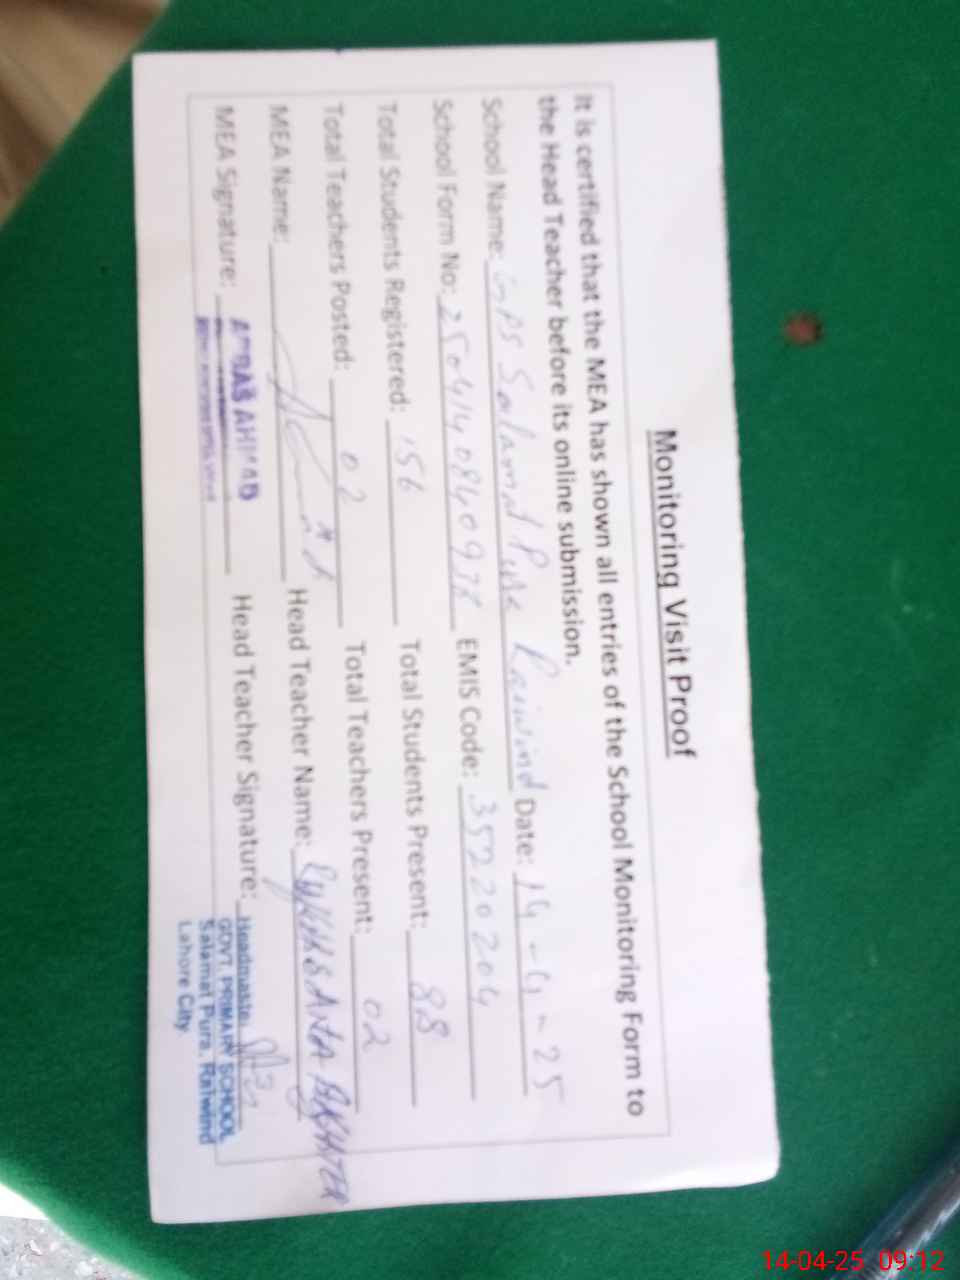 Monitoring Visit Proof
It is certified that the MEA has shown all entries of the School Monitoring Form to
the Head Teacher before its online submission.
School Name: GPS Salamat Pura Raiwind Date: 14-4-25
School Form No: EMIS Code: 35220204
Total Students Registered: 156 Total Students Present: 88
Total Teachers Posted: 02 Total Teachers Present: 02
MEA Name: Head Teacher Name: AKHTER
MEA Signature: ABBAS AHMAD Head Teacher Signature:
Headmaster
GOVT. PRIMARY SCHOOL
Salamat Pura, Raiwind
Lahore City.
14-04-25 09:12